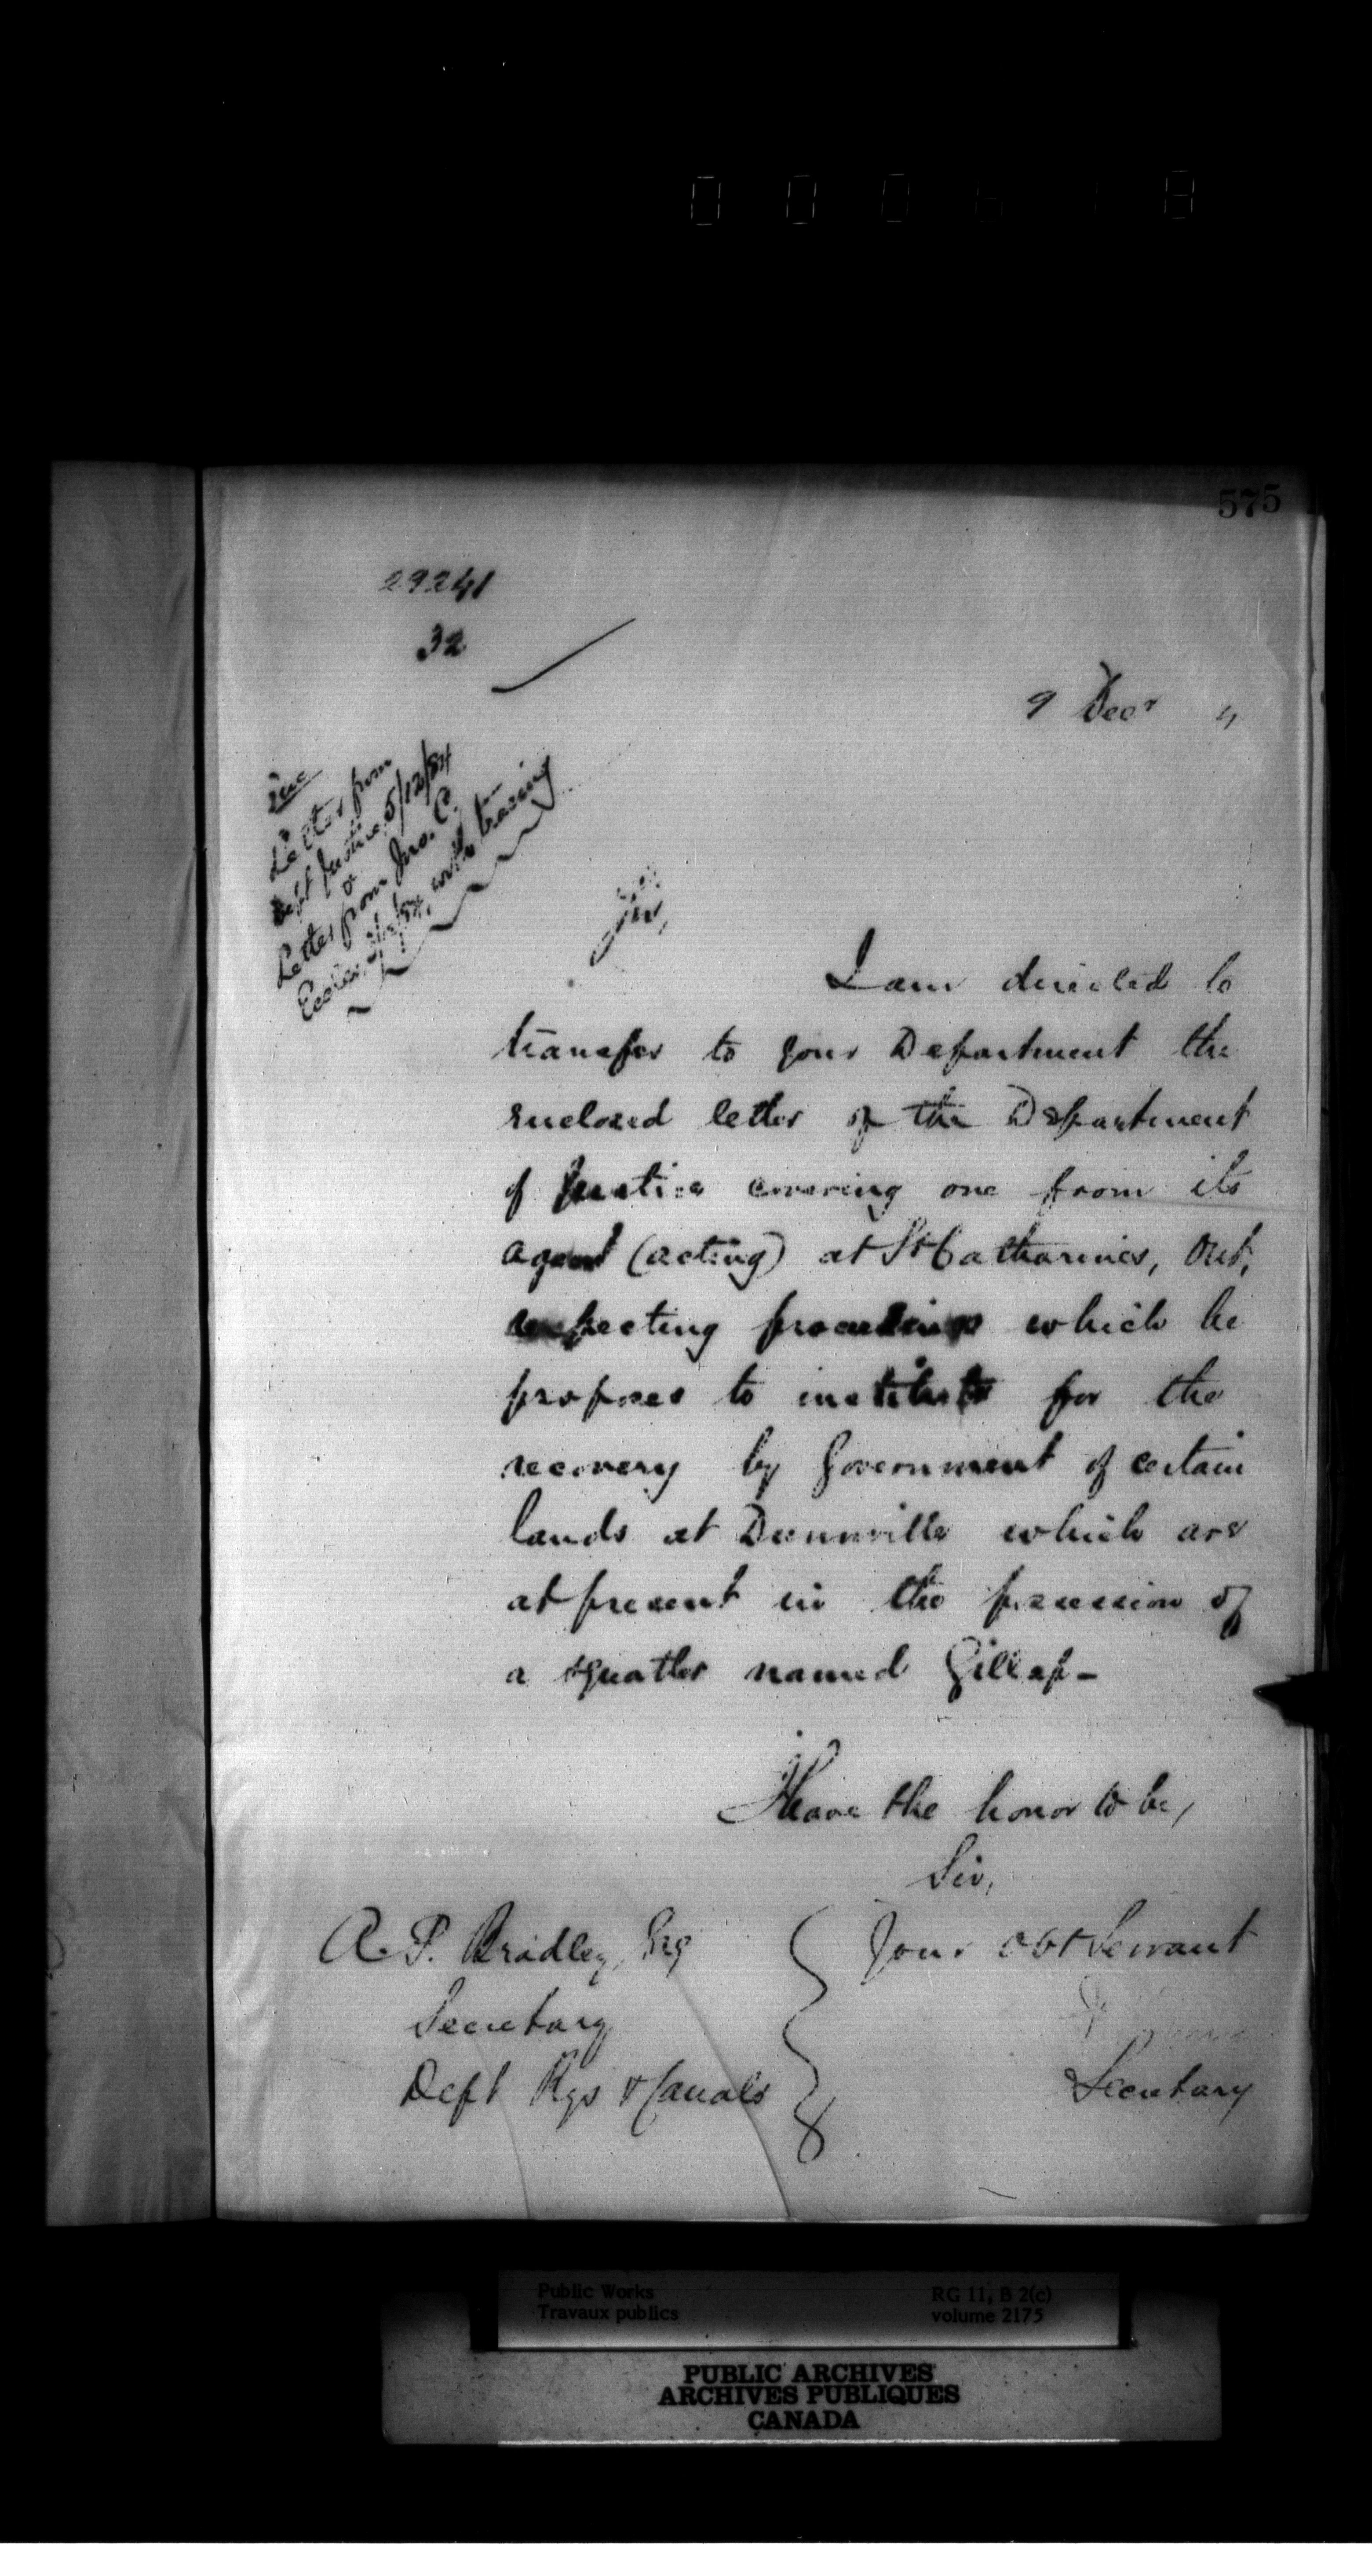 575
29241
32
9 Decr 4
Enc
Letter from
Dept Justice 5/12/84
&
Letter from Jno. C.
Eccles, with tracing
Sir,
I am directed to
transfer to your Department the
enclosed letter of the Department
of Justice covering one from its
agent (acting) at St Catharines, Ont,
respecting proceedings which he
proposes to institute for the
recovery by Government of certain
lands at Dunnville which are
at present in the possession of
a squatter named Gillap-
I have the honor to be,
Sir,
Your obt Servant
Secretary
A. P. Bradley, Esq
Secretary
Dept Rys & Canals
Public Works
Travaux publics
RG 11, B 2(c)
volume 2175
PUBLIC ARCHIVES
ARCHIVES PUBLIQUES
CANADA